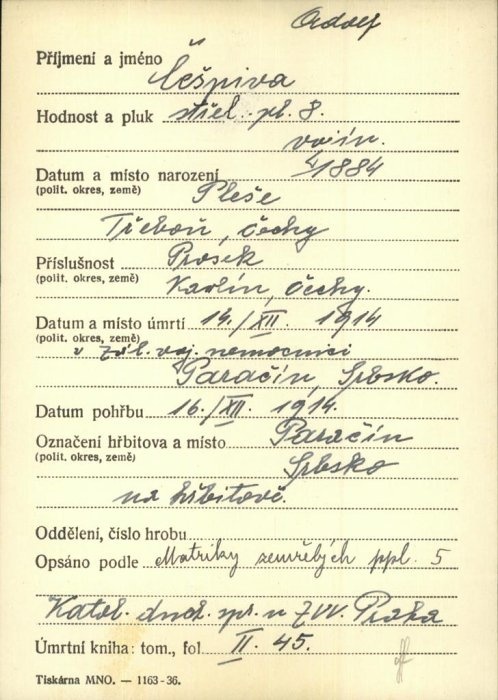 Adolf
Příjmení a jméno Češpiva
Hodnost a pluk střel. pl. 8.
vojín.
Datum a místo narození 1884
(polit. okres, země) Pleše
Třeboň, Čechy
Příslušnost Prosek
(polit. okres, země) Karlín, Čechy.
Datum a místo úmrtí 14./XII. 1914
(polit. okres, země)
v zál. voj. nemocnici
Paračín, Srbsko.
Datum pohřbu 16./XII. 1914.
Označení hřbitova a místo Paračín
(polit. okres, země) Srbsko
na hřbitově.
Oddělení, číslo hrobu
Opsáno podle Matriky zemřelých ppl. 5
Katol. duch. spr. u ZVV. Praha
Úmrtní kniha: tom., fol. II. 45.
Tiskárna MNO. — 1163-36.